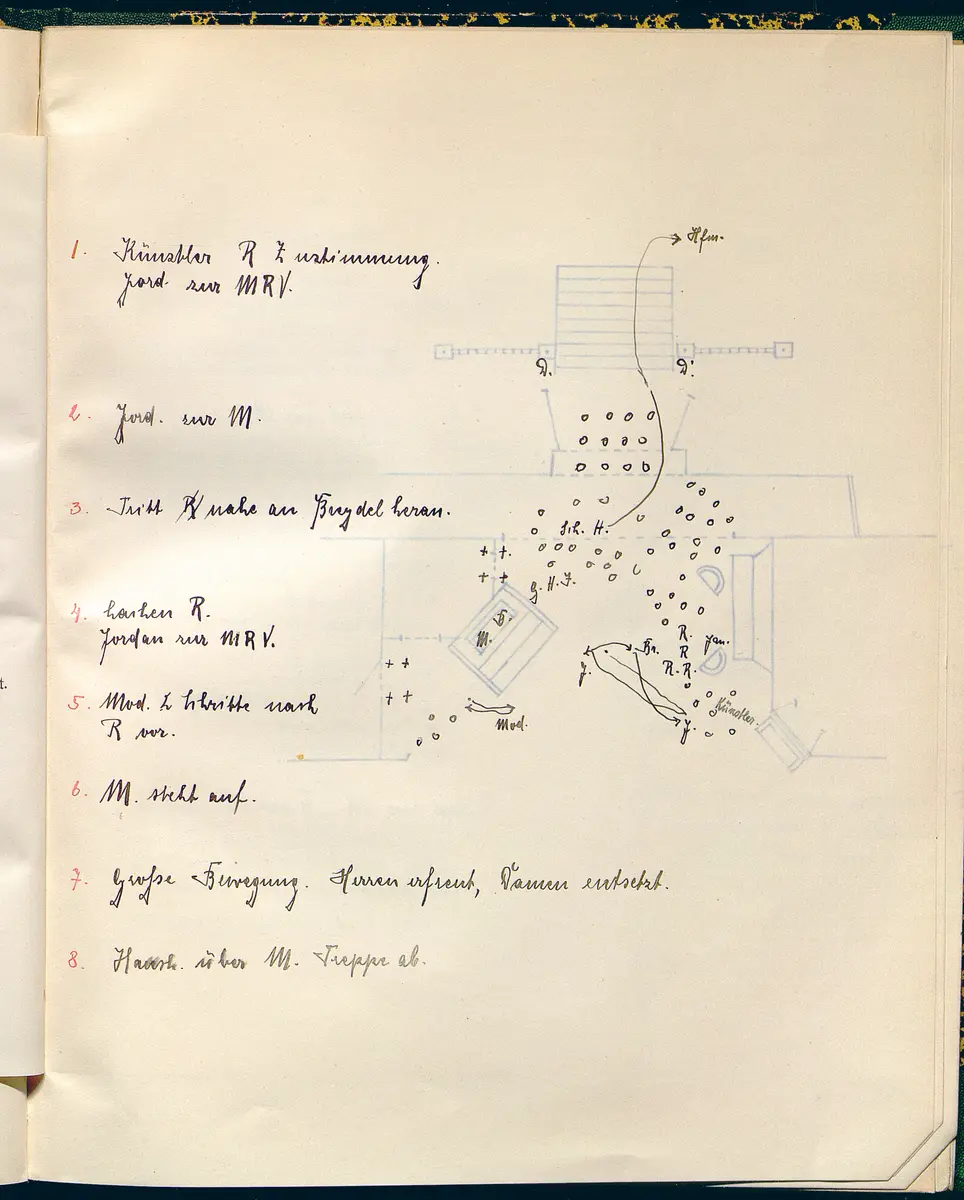 1. Künstler R Zustimmung.
Jord. zur MRV.
2. Jord. zur M.
3. Tritt R nahe an Breydel heran.
4. lachen R.
Jordan zur MRV.
5. Mod. 2 Schritte nach
R vor.
6. M. steht auf.
7. Große Bewegung. Herren erfreut, Damen entsetzt.
8. über M. Treppe ab.
Hfm.
D. D.
Sch. H.
G. H. J.
B.
M.
J.
Br.
R.
R
R. R.
Jan.
Künstler.
J.
Mod.
t.